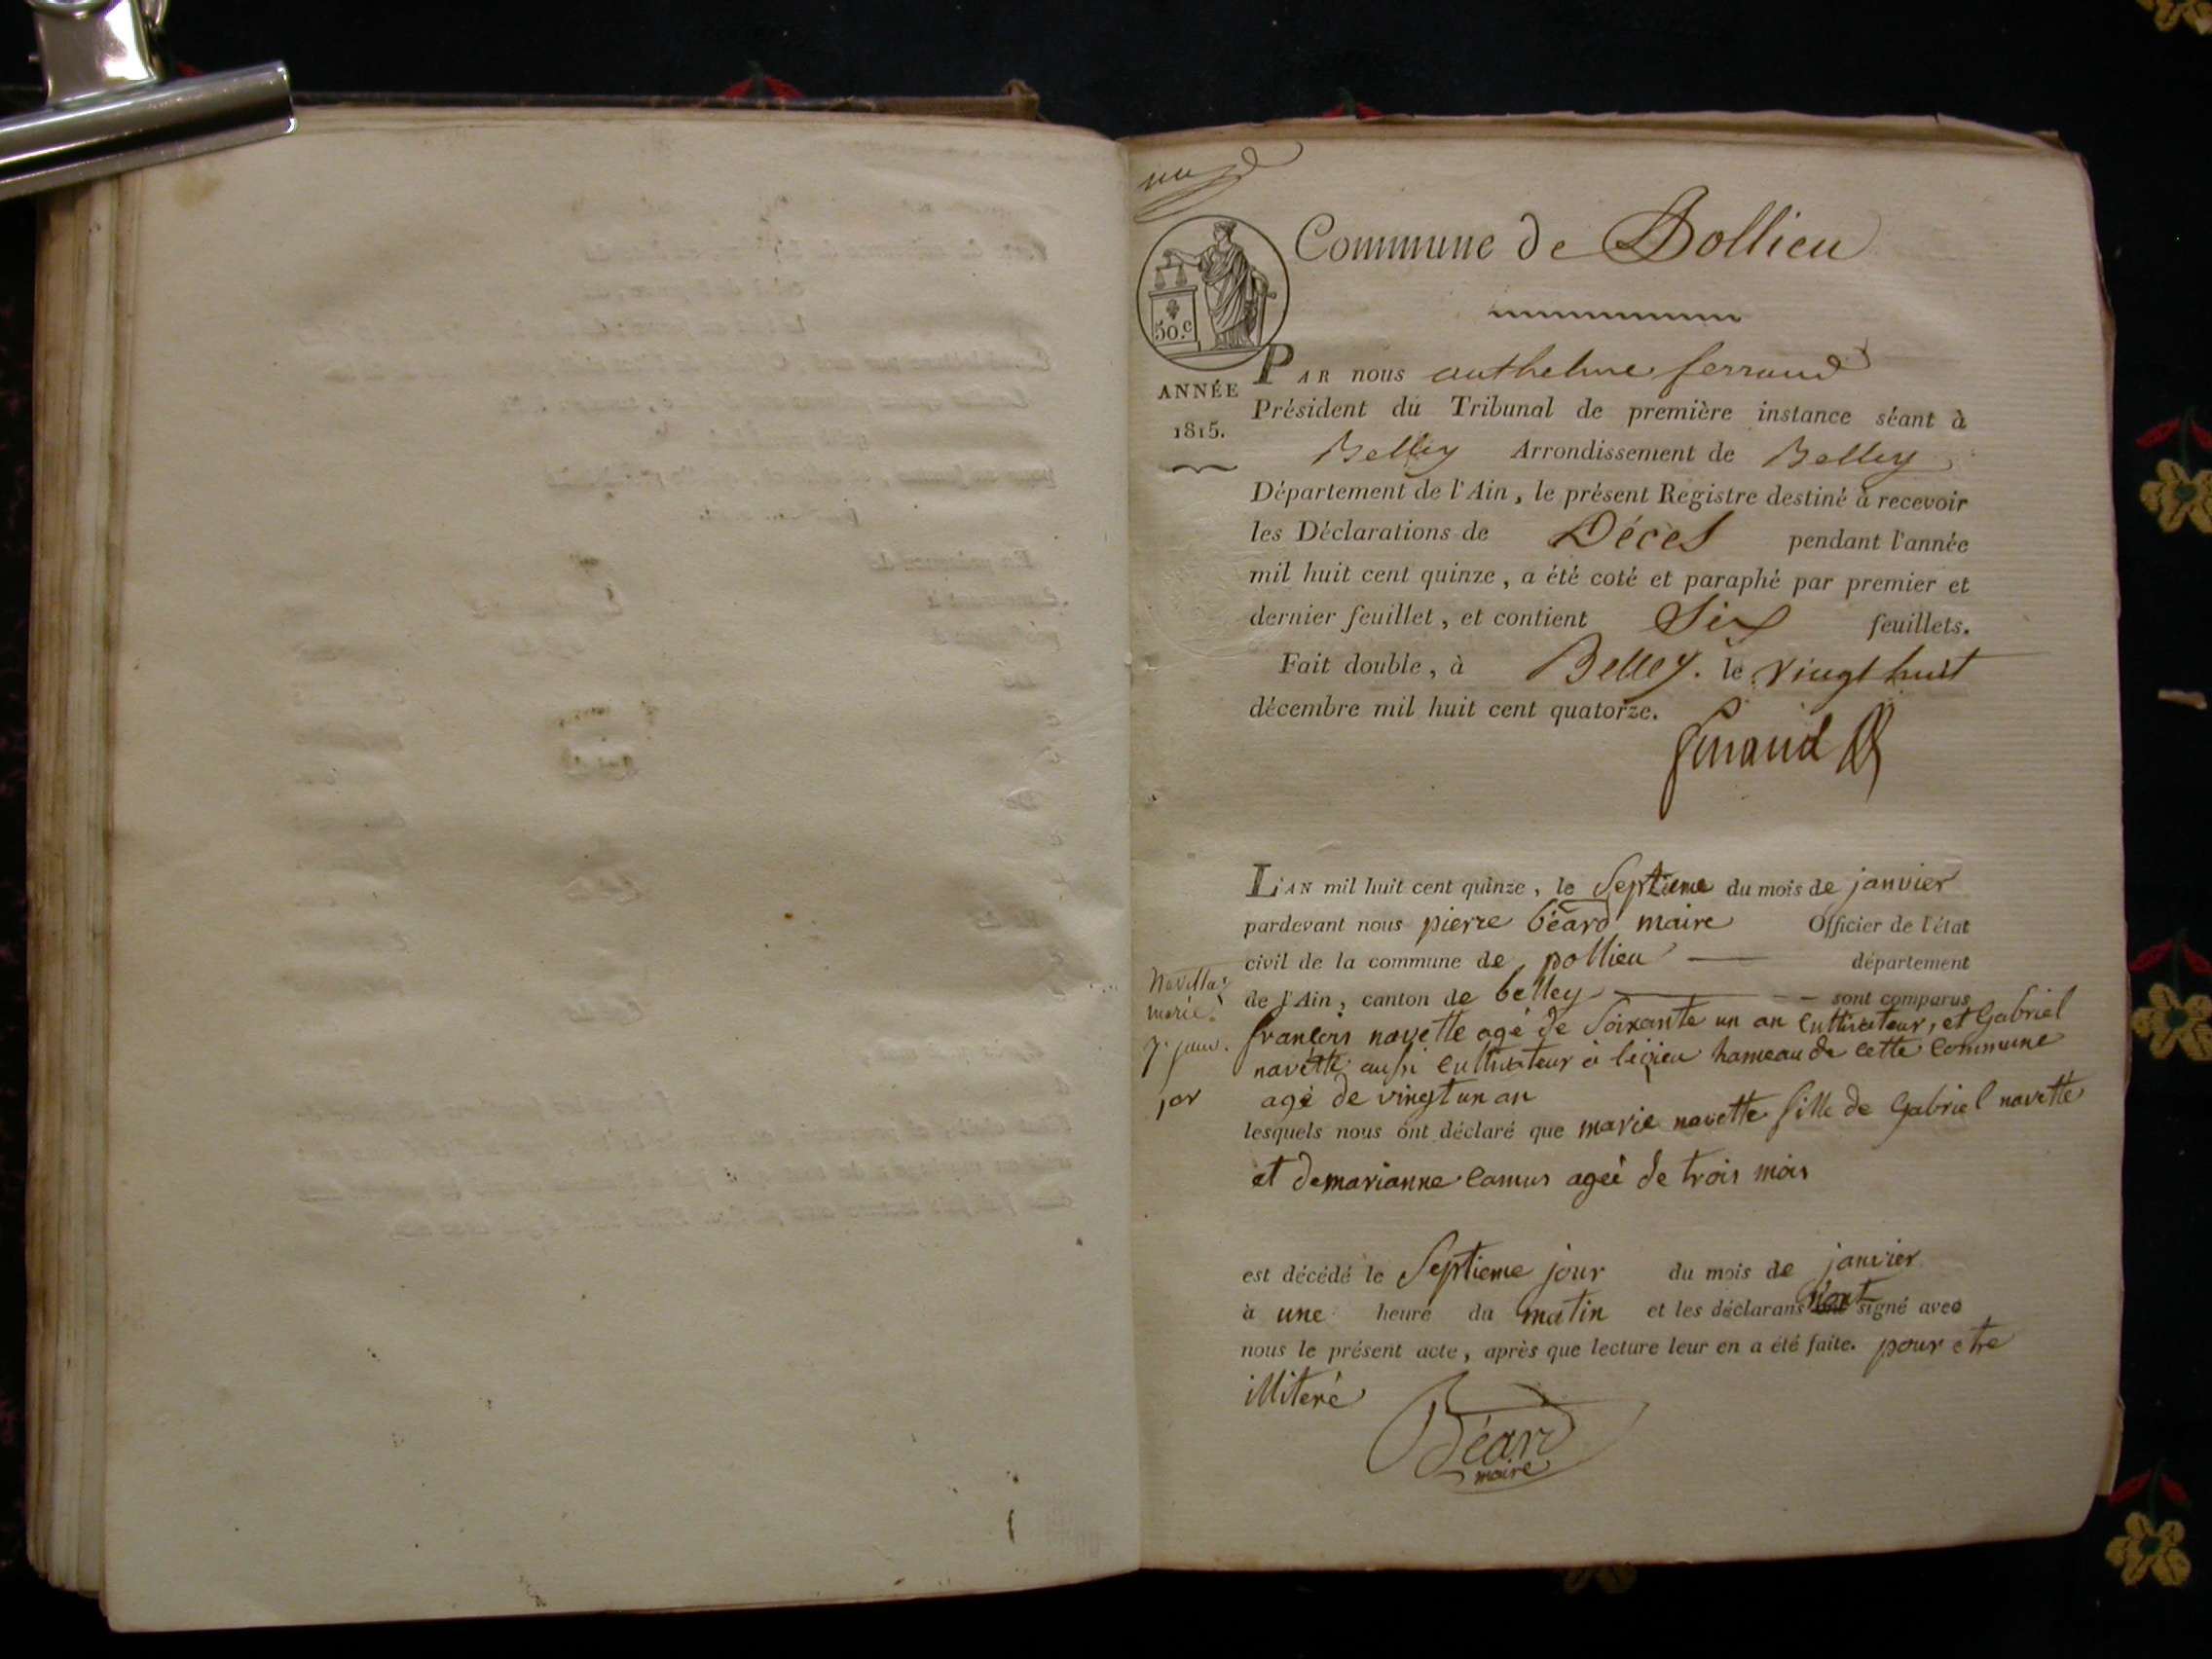 Commune de Pollieu
50.c
ANNÉE
1815.
PAR nous anthelme ferrand
Président du Tribunal de première instance séant à
Belley Arrondissement de Belley
Département de l'Ain, le présent Registre destiné à recevoir
les Déclarations de Décès pendant l'année
mil huit cent quinze, a été coté et paraphé par premier et
dernier feuillet, et contient Six feuillets.
Fait double, à Belley. le vingt huit
décembre mil huit cent quatorze.
ferrand
L'AN mil huit cent quinze, le Septieme du mois de janvier
pardevant nous pierre béard maire Officier de l'état
civil de la commune de pollieu département
de l'Ain, canton de belley sont comparus
françois navette agé de Soixante un an Cultivateur, et Gabriel
navette aussi Cultivateur à hameau de cette Commune
agé de vingt un an
lesquels nous ont déclaré que marie navette fille de Gabriel navette
et de marianne Camus ageé de trois mois
est décédé le Septieme jour du mois de janvier
à une heure du matin et les déclarans n'ont signé avec
nous le présent acte, après que lecture leur en a été faite. pour etre
illiteré
Béard
maire
marie.
7. janv.